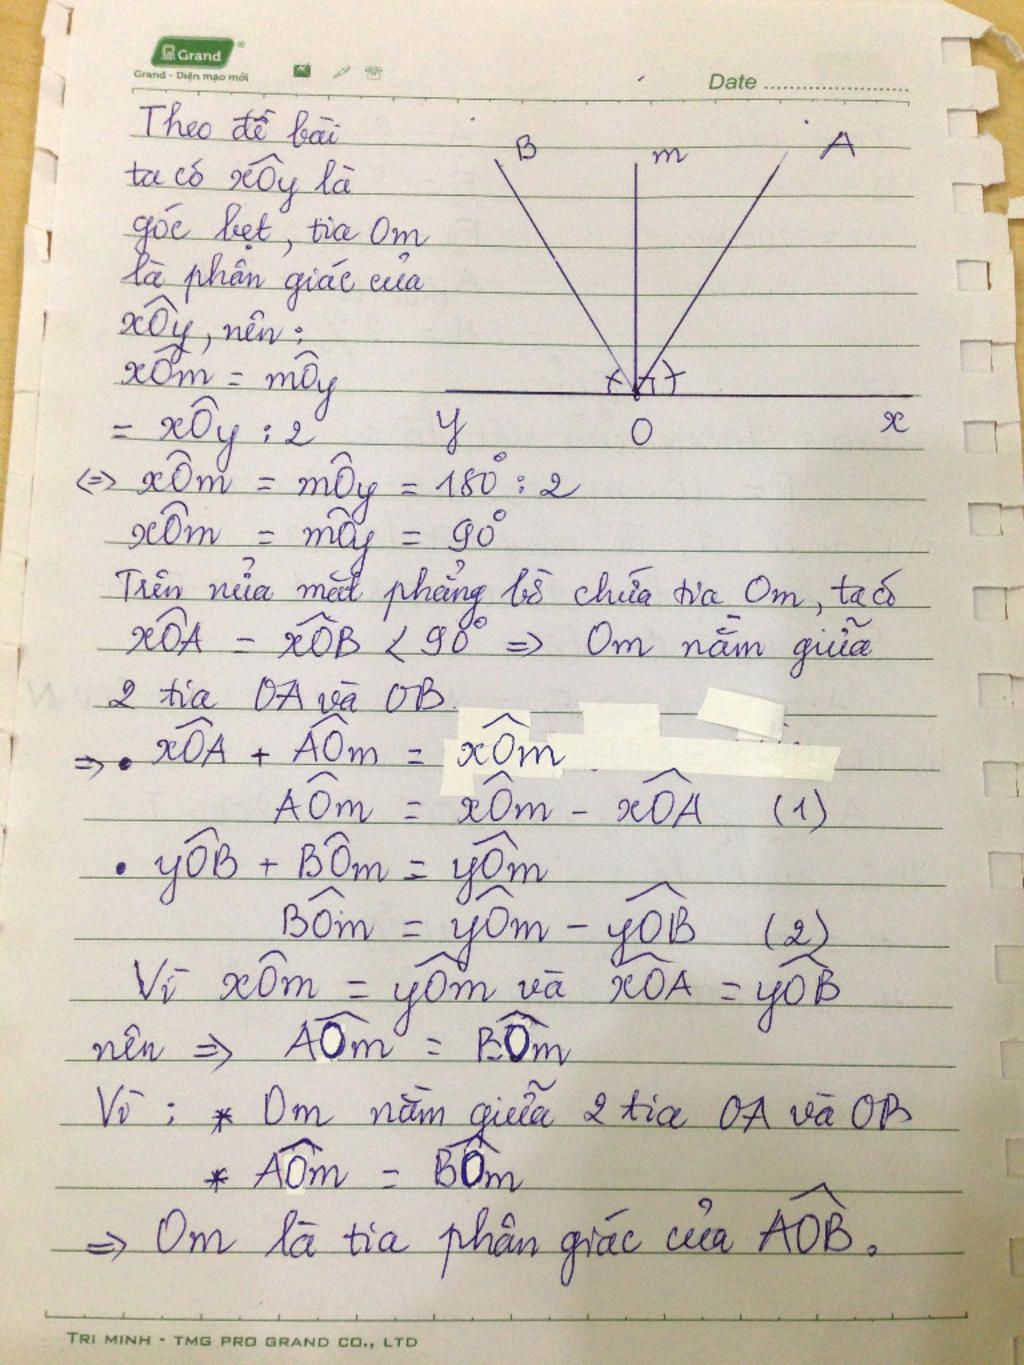 Grand
Grand - Diện mạo mới
Date
Theo đề bài
ta có xÔy là
góc bẹt, tia Om
là phân giác của
xÔy, nên:
xÔm = mÔy
= xÔy : 2
B m A
y O x
<=> xÔm = mÔy = 180° : 2
xÔm = mÔy = 90°
Trên nửa mặt phẳng bờ chứa tia Om, ta có
xÔA = xÔB < 90° => Om nằm giữa
2 tia OA và OB.
=> • xÔA + AÔm = xÔm
AÔm = xÔm - xÔA (1)
• yÔB + BÔm = yÔm
BÔm = yÔm - yÔB (2)
Vì xÔm = yÔm và xÔA = yÔB
nên => AÔm = BÔm
Vì : * Om nằm giữa 2 tia OA và OB
* AÔm = BÔm
=> Om là tia phân giác của AÔB.
TRI MINH - TMG PRO GRAND CO., LTD